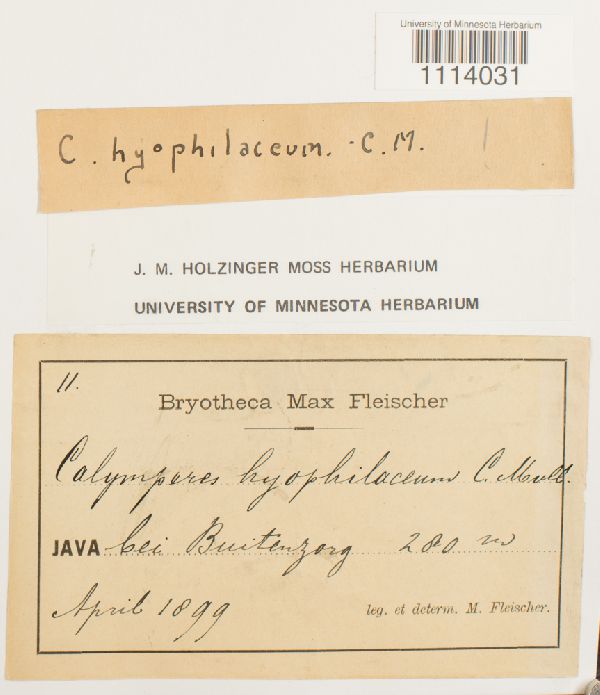 University of Minnesota Herbarium
1114031
C. hyophilaceum. C.M.
J. M. HOLZINGER MOSS HERBARIUM
UNIVERSITY OF MINNESOTA HERBARIUM
11.
Bryotheca Max Fleischer
Calymperes hyophilaceum C. Mull.
JAVA bei Buitenzorg 280 m
April 1899 leg. et determ. M. Fleischer.